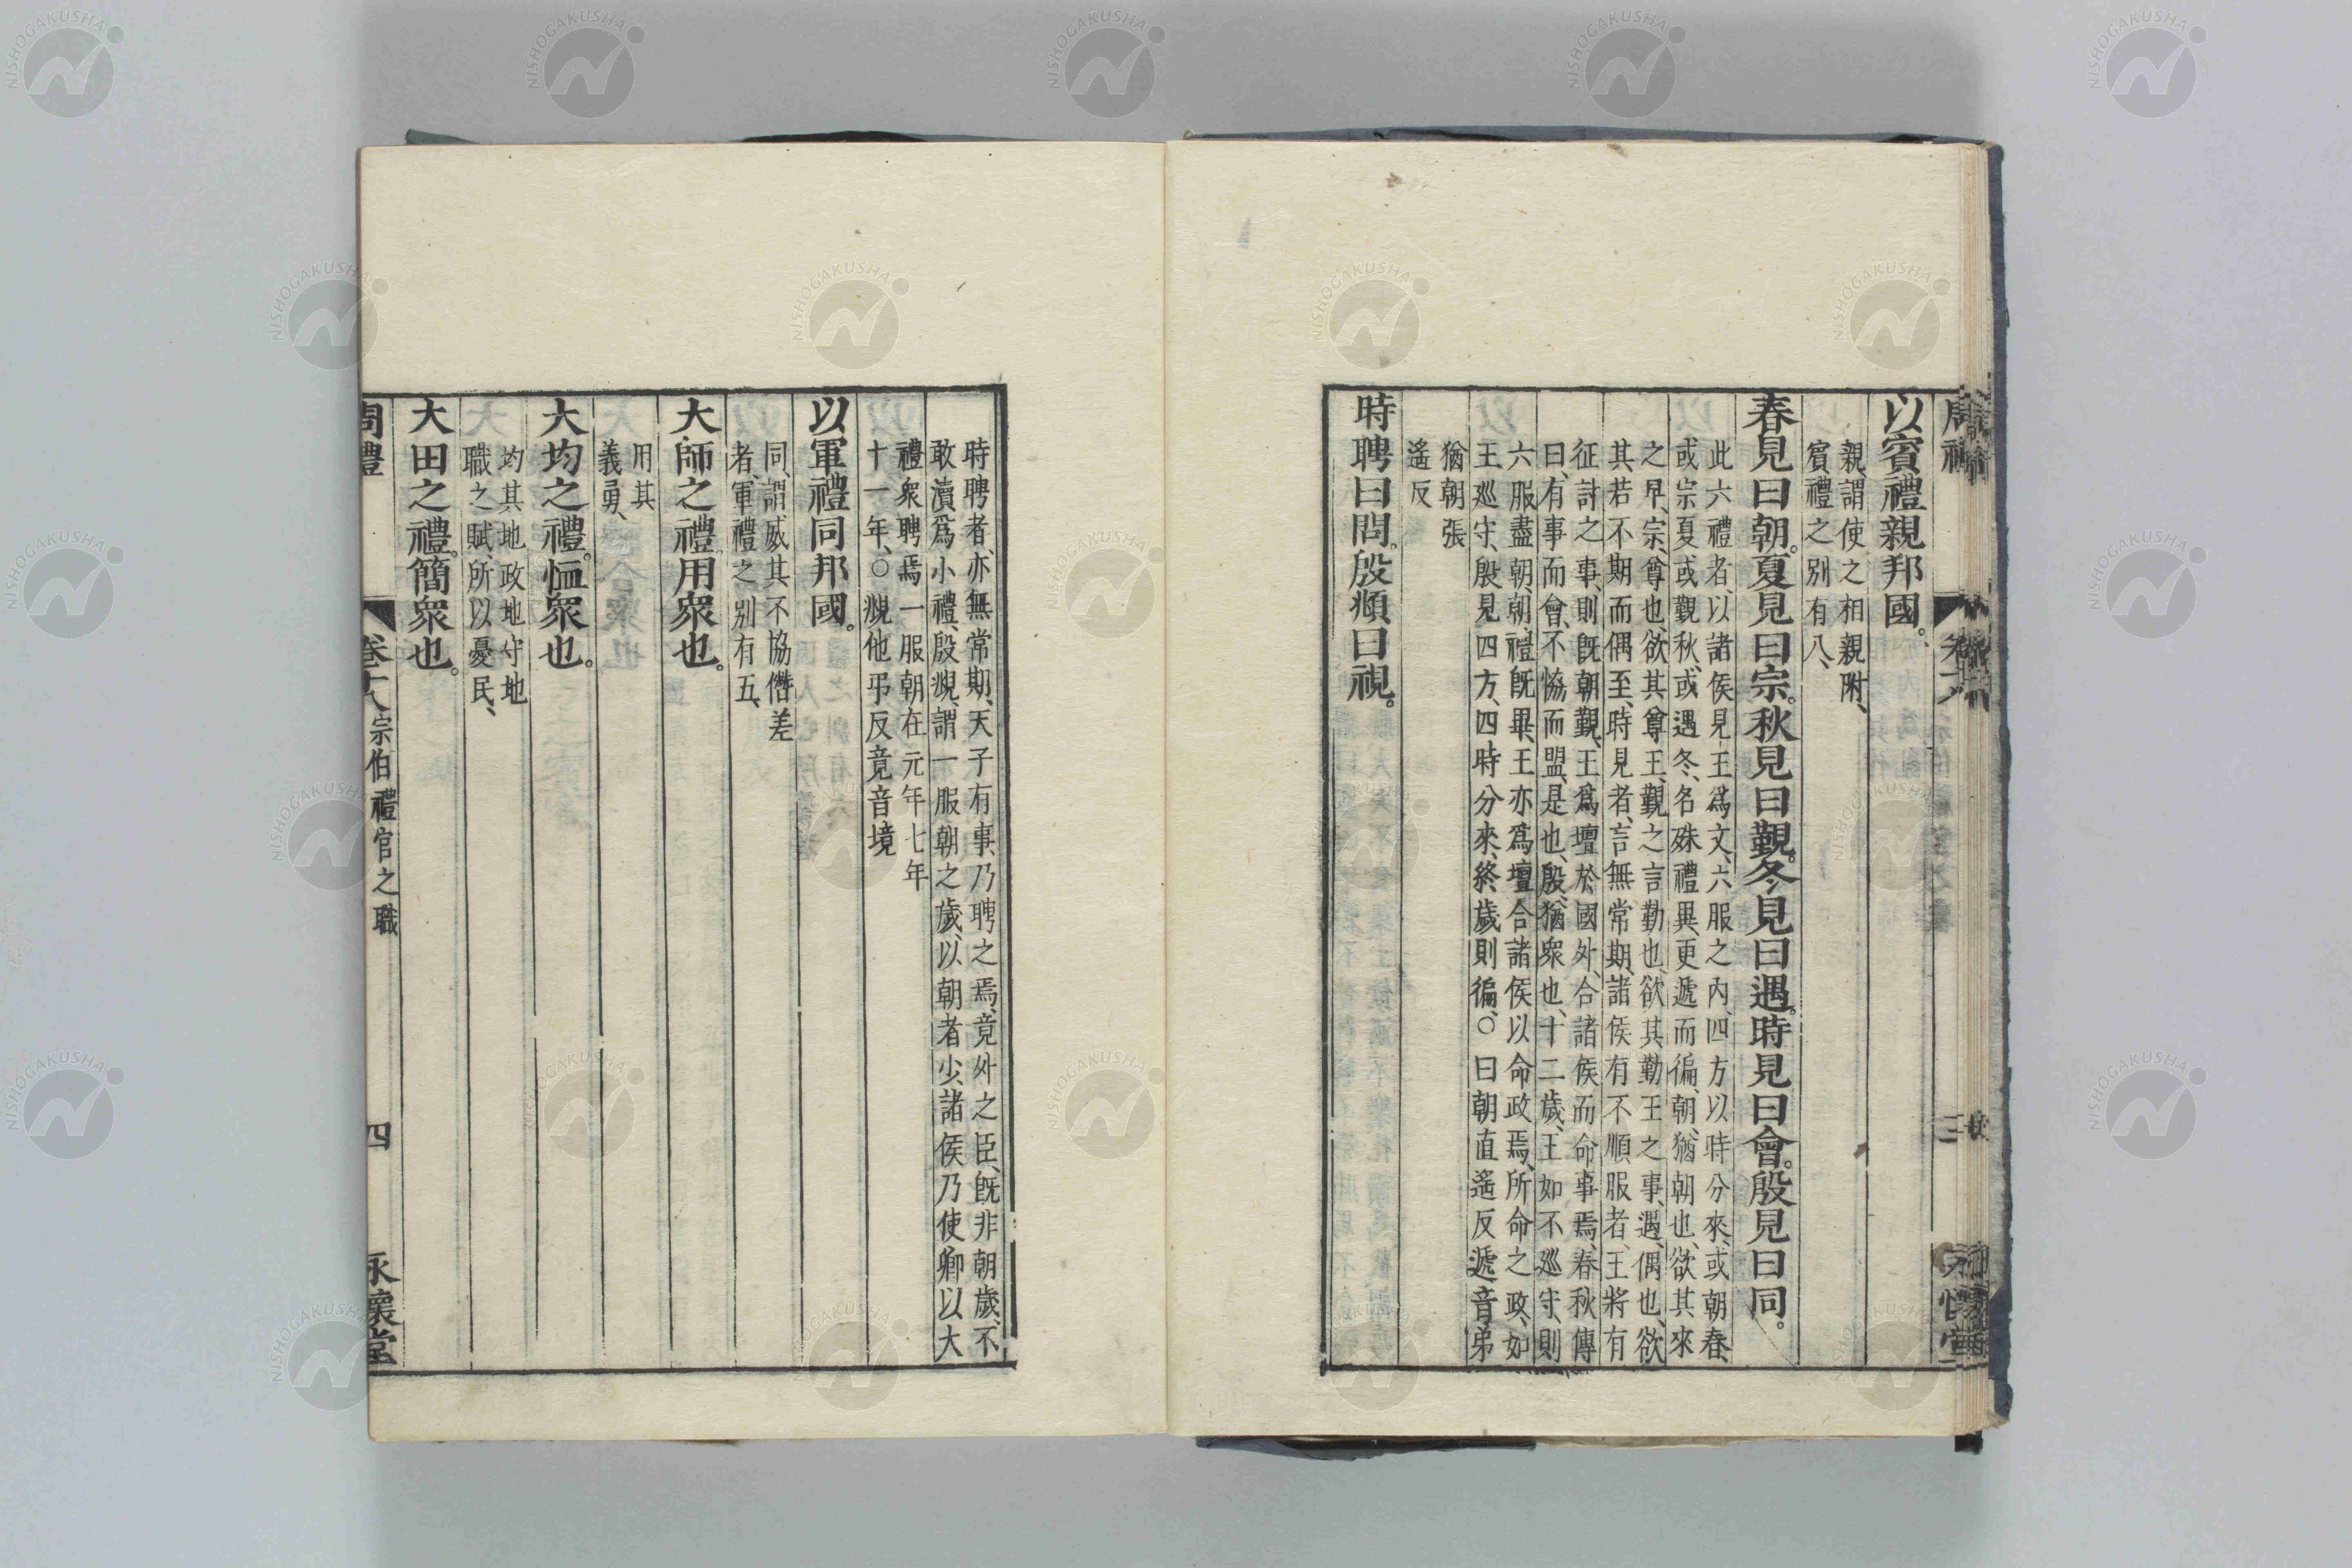 以賓禮親邦國。
親、謂使之相親附、
賓禮之別有八、
春見曰朝。夏見曰宗。秋見曰覲。冬見曰遇。時見曰會。殷見曰同。
此六禮者、以諸侯見王爲文、六服之內、四方以時分來、或朝春、
或宗夏、或覲秋、或遇冬、名殊禮異、更遞而徧、朝、猶朝也、欲其來
之早、宗、尊也、欲其尊王、覲之言勤也、欲其勤王之事、遇、偶也、欲
其若不期而偶至、時見者、言無常期、諸侯有不順服者、王將有
征討之事、則旣朝覲、王爲壇於國外、合諸侯而命事焉、春秋傳
曰、有事而會、不恊而盟、是也、殷、猶衆也、十二歲、王如不巡守、則
六服盡朝、朝禮旣畢、王亦爲壇合諸侯以命政焉、所命之政、如
王巡守、殷見四方、四時分來、終歲則徧、○曰朝直遙反遞音弟
猶朝張
遙反
時聘曰問。殷頫曰視。
時聘者、亦無常期、天子有事、乃聘之焉、竟外之臣、旣非朝歲、不
敢瀆爲小禮、殷覜、謂一服朝之歲、以朝者少、諸侯乃使卿以大
禮衆聘焉、一服朝在元年七年
十一年、○覜他弔反竟音境
以軍禮同邦國。
同、謂威其不協僭差
者、軍禮之別有五、
大師之禮。用衆也。
用其
義勇、
大均之禮。恤衆也。
均其地政地守地
職之賦、所以憂民、
大田之禮。簡衆也。
周禮 卷十八 宗伯禮官之職 四 永懷堂
NISHOGAKUSHA